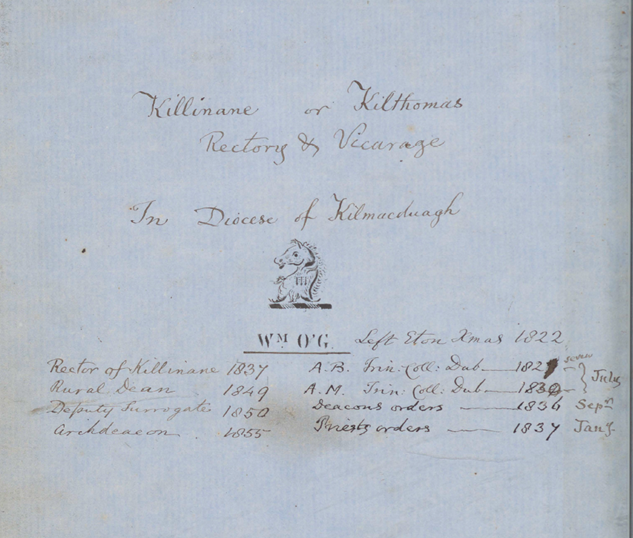 Killinane or Kilthomas
Rectory & Vicarage
In Diocese of Kilmacduagh
Wm O'G. Left Eton Xmas 1822
Rector of Killinane 1837 A.B. Trin: Coll: Dub 1827 seven
Rural Dean 1849 A.M. Trin: Coll: Dub 1832 July
Deputy Surrogate 1850 Deacons orders 1836 Sepr
Archdeacon 1855 Priests orders 1837 Jany.